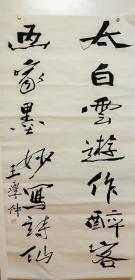 太白雲遊作醉客
墨妙写詩仙
王學仲